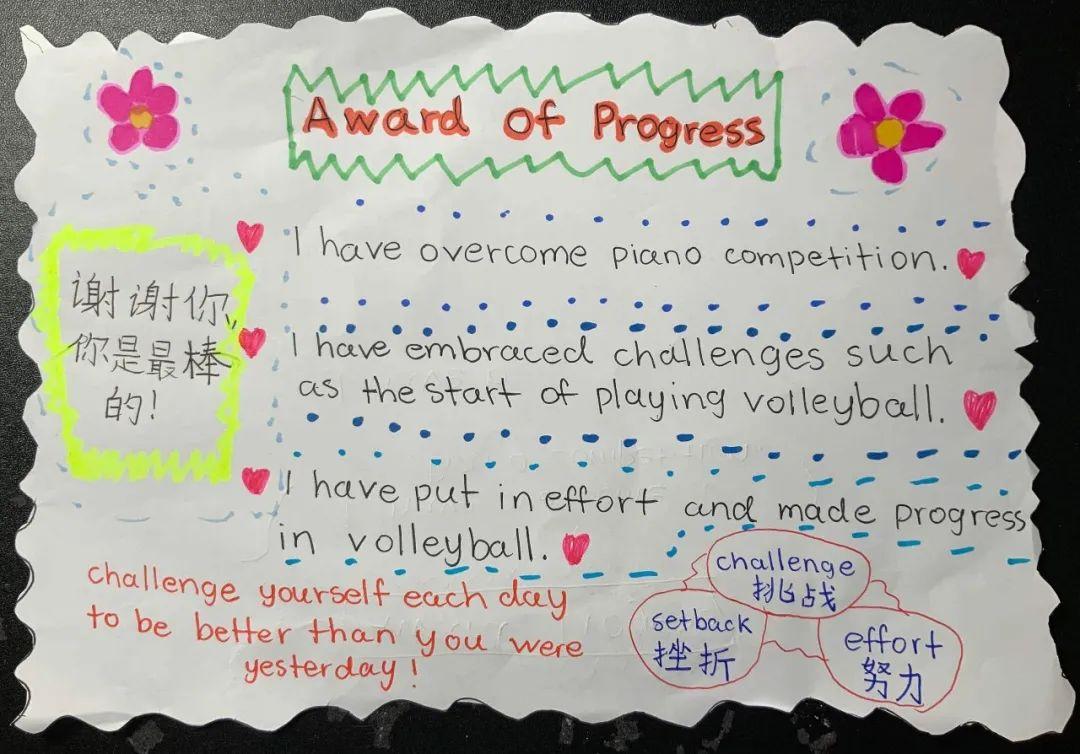 Award of Progress
谢谢你,
你是最棒
的!
I have overcome piano competition.
I have embraced challenges such
as the start of playing volleyball.
I have put in effort and made progress
in volleyball.
challenge yourself each day
to be better than you were
yesterday!
challenge
挑战
setback
挫折
effort
努力